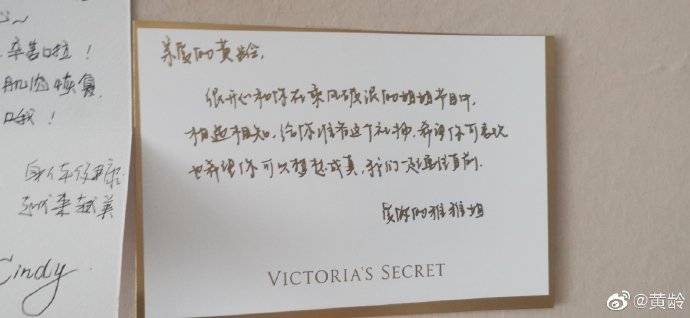 辛苦啦！
肌肉恢复
身体健康
越来越美
Cindy
亲爱的黄龄，
很开心和你在乘风破浪的姐姐节目中，
相遇相知，给你准备这个礼物，希望你可喜欢
也希望你可以梦想成真，我们一起勇往直前。
爱你的雅雅姐
VICTORIA'S SECRET
@黄龄